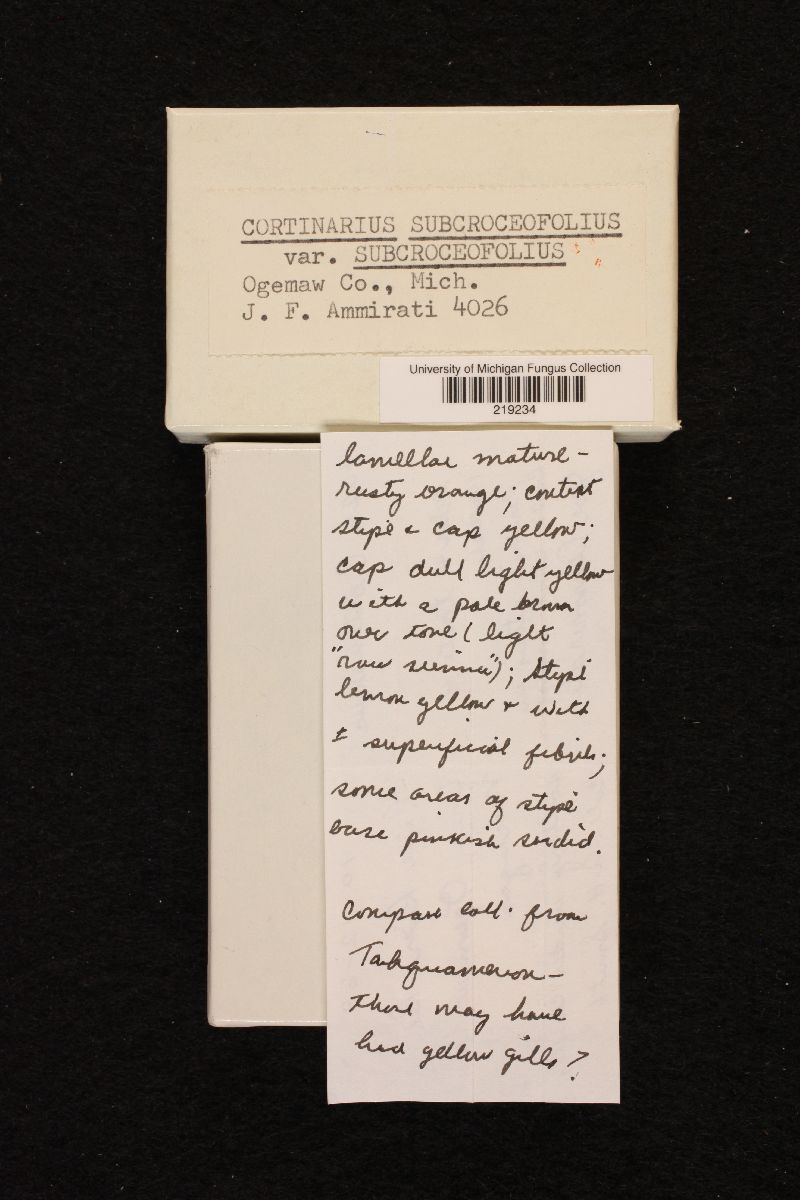 CORTINARIUS SUBCROCEOFOLIUS
var. SUBCROCEOFOLIUS
Ogemaw Co., Mich.
J. F. Ammirati 4026
University of Michigan Fungus Collection
219234
lamellae mature –
rusty orange; context
stipe & cap yellow;
cap dull light yellow
with a pale brown
over tone (light
"raw sienna"); stipe
lemon yellow & with
± superficial fibrils;
some areas of stipe
base pinkish sordid.
Compare coll. from
Tahquamenon –
those may have
had yellow gills?